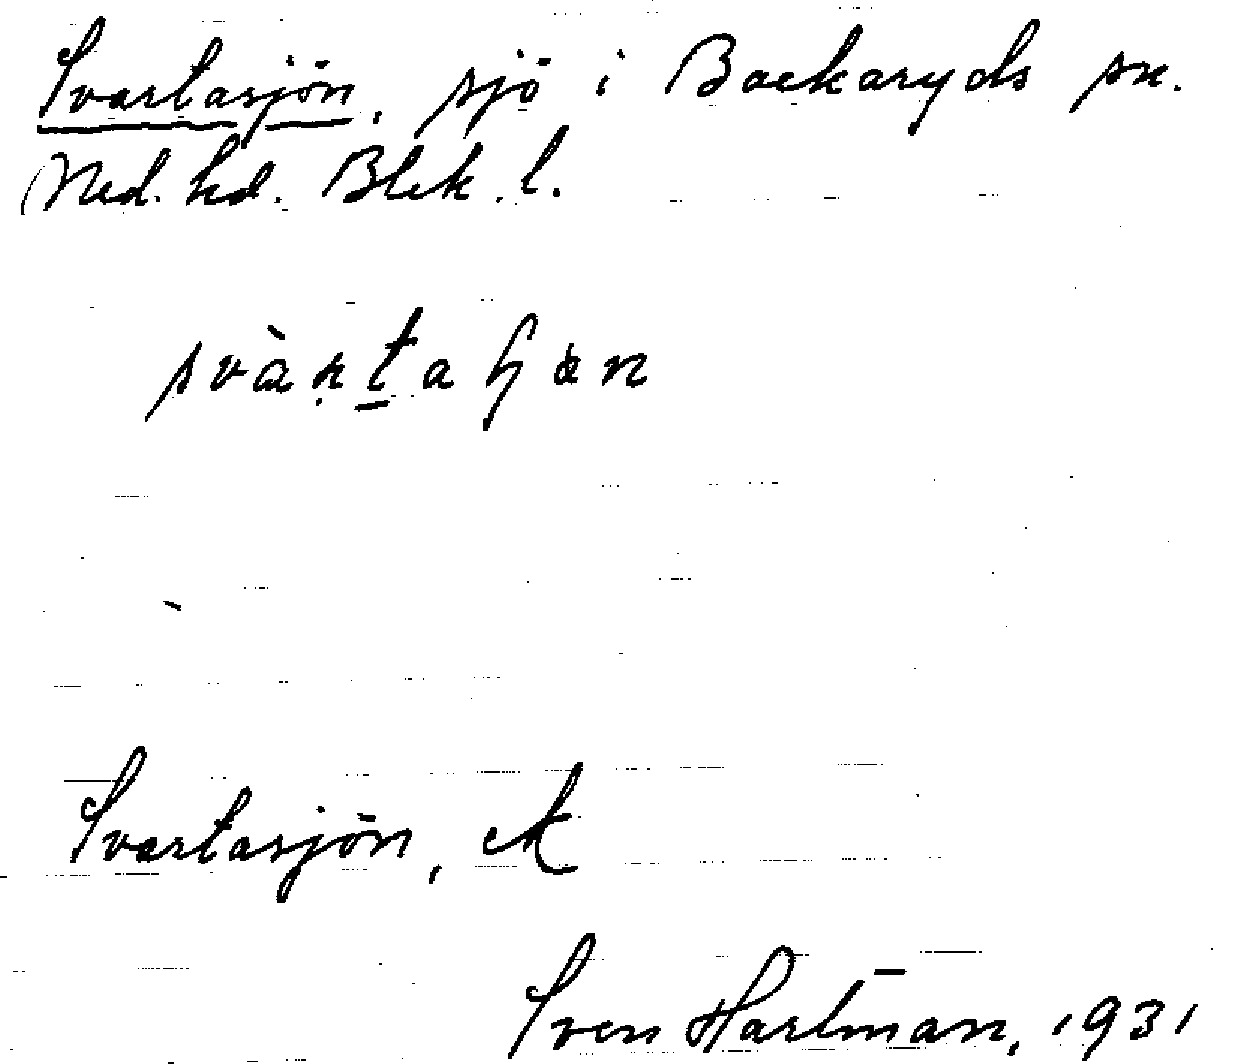 Svartasjön, sjö i Backaryds sn.
Med. hd. Blek. l.
Svartasjön,
Sven Hartman, 1931